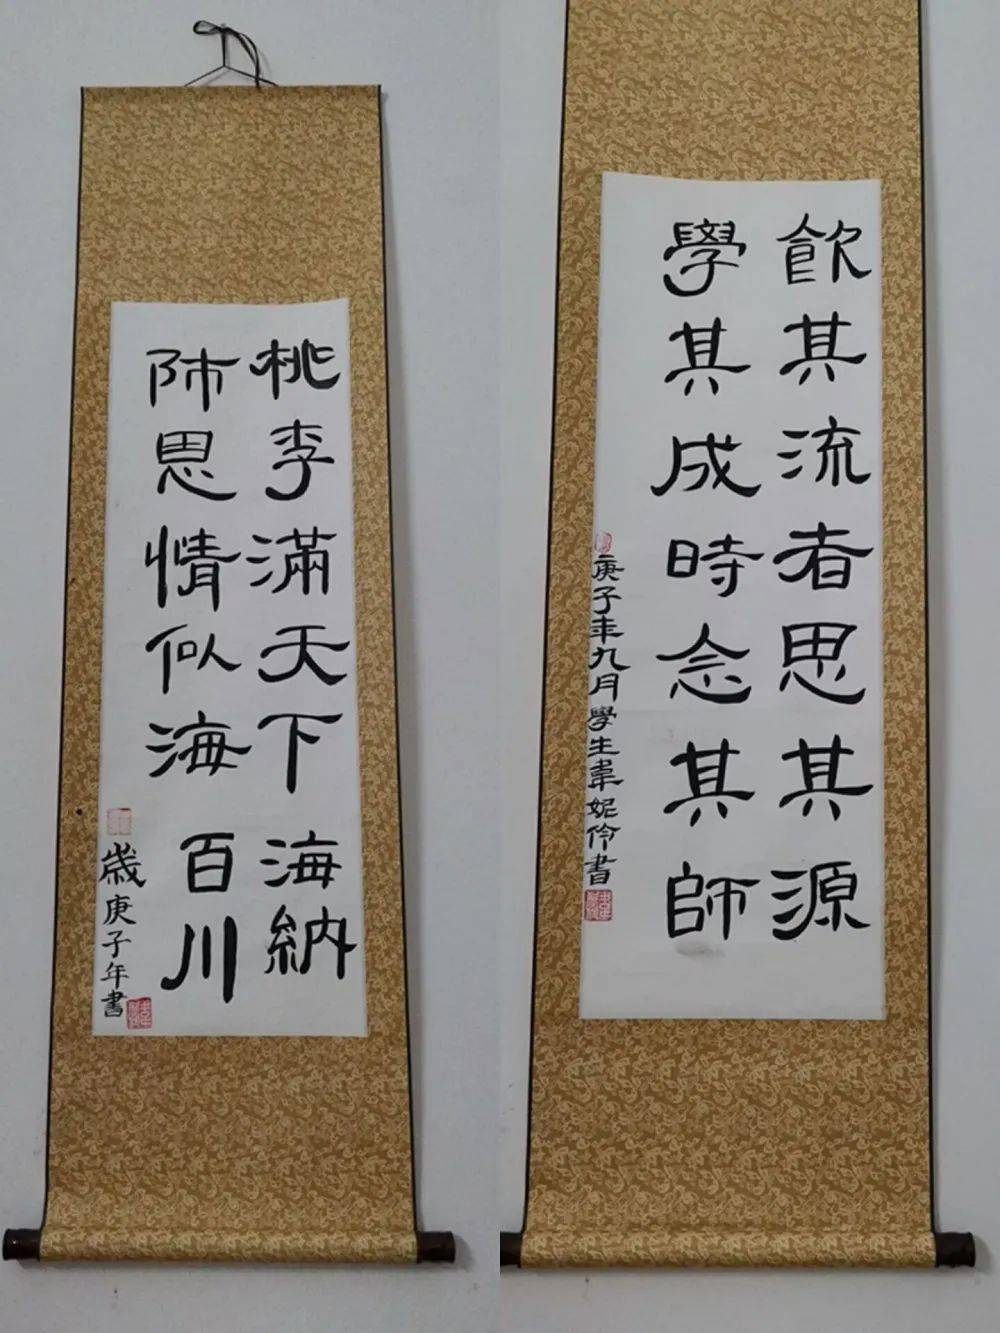 桃李滿天下 海納
师恩情似海 百川
歲庚子年書
飲其流者思其源
學其成時念其師
庚子年九月學生韋妮伶書